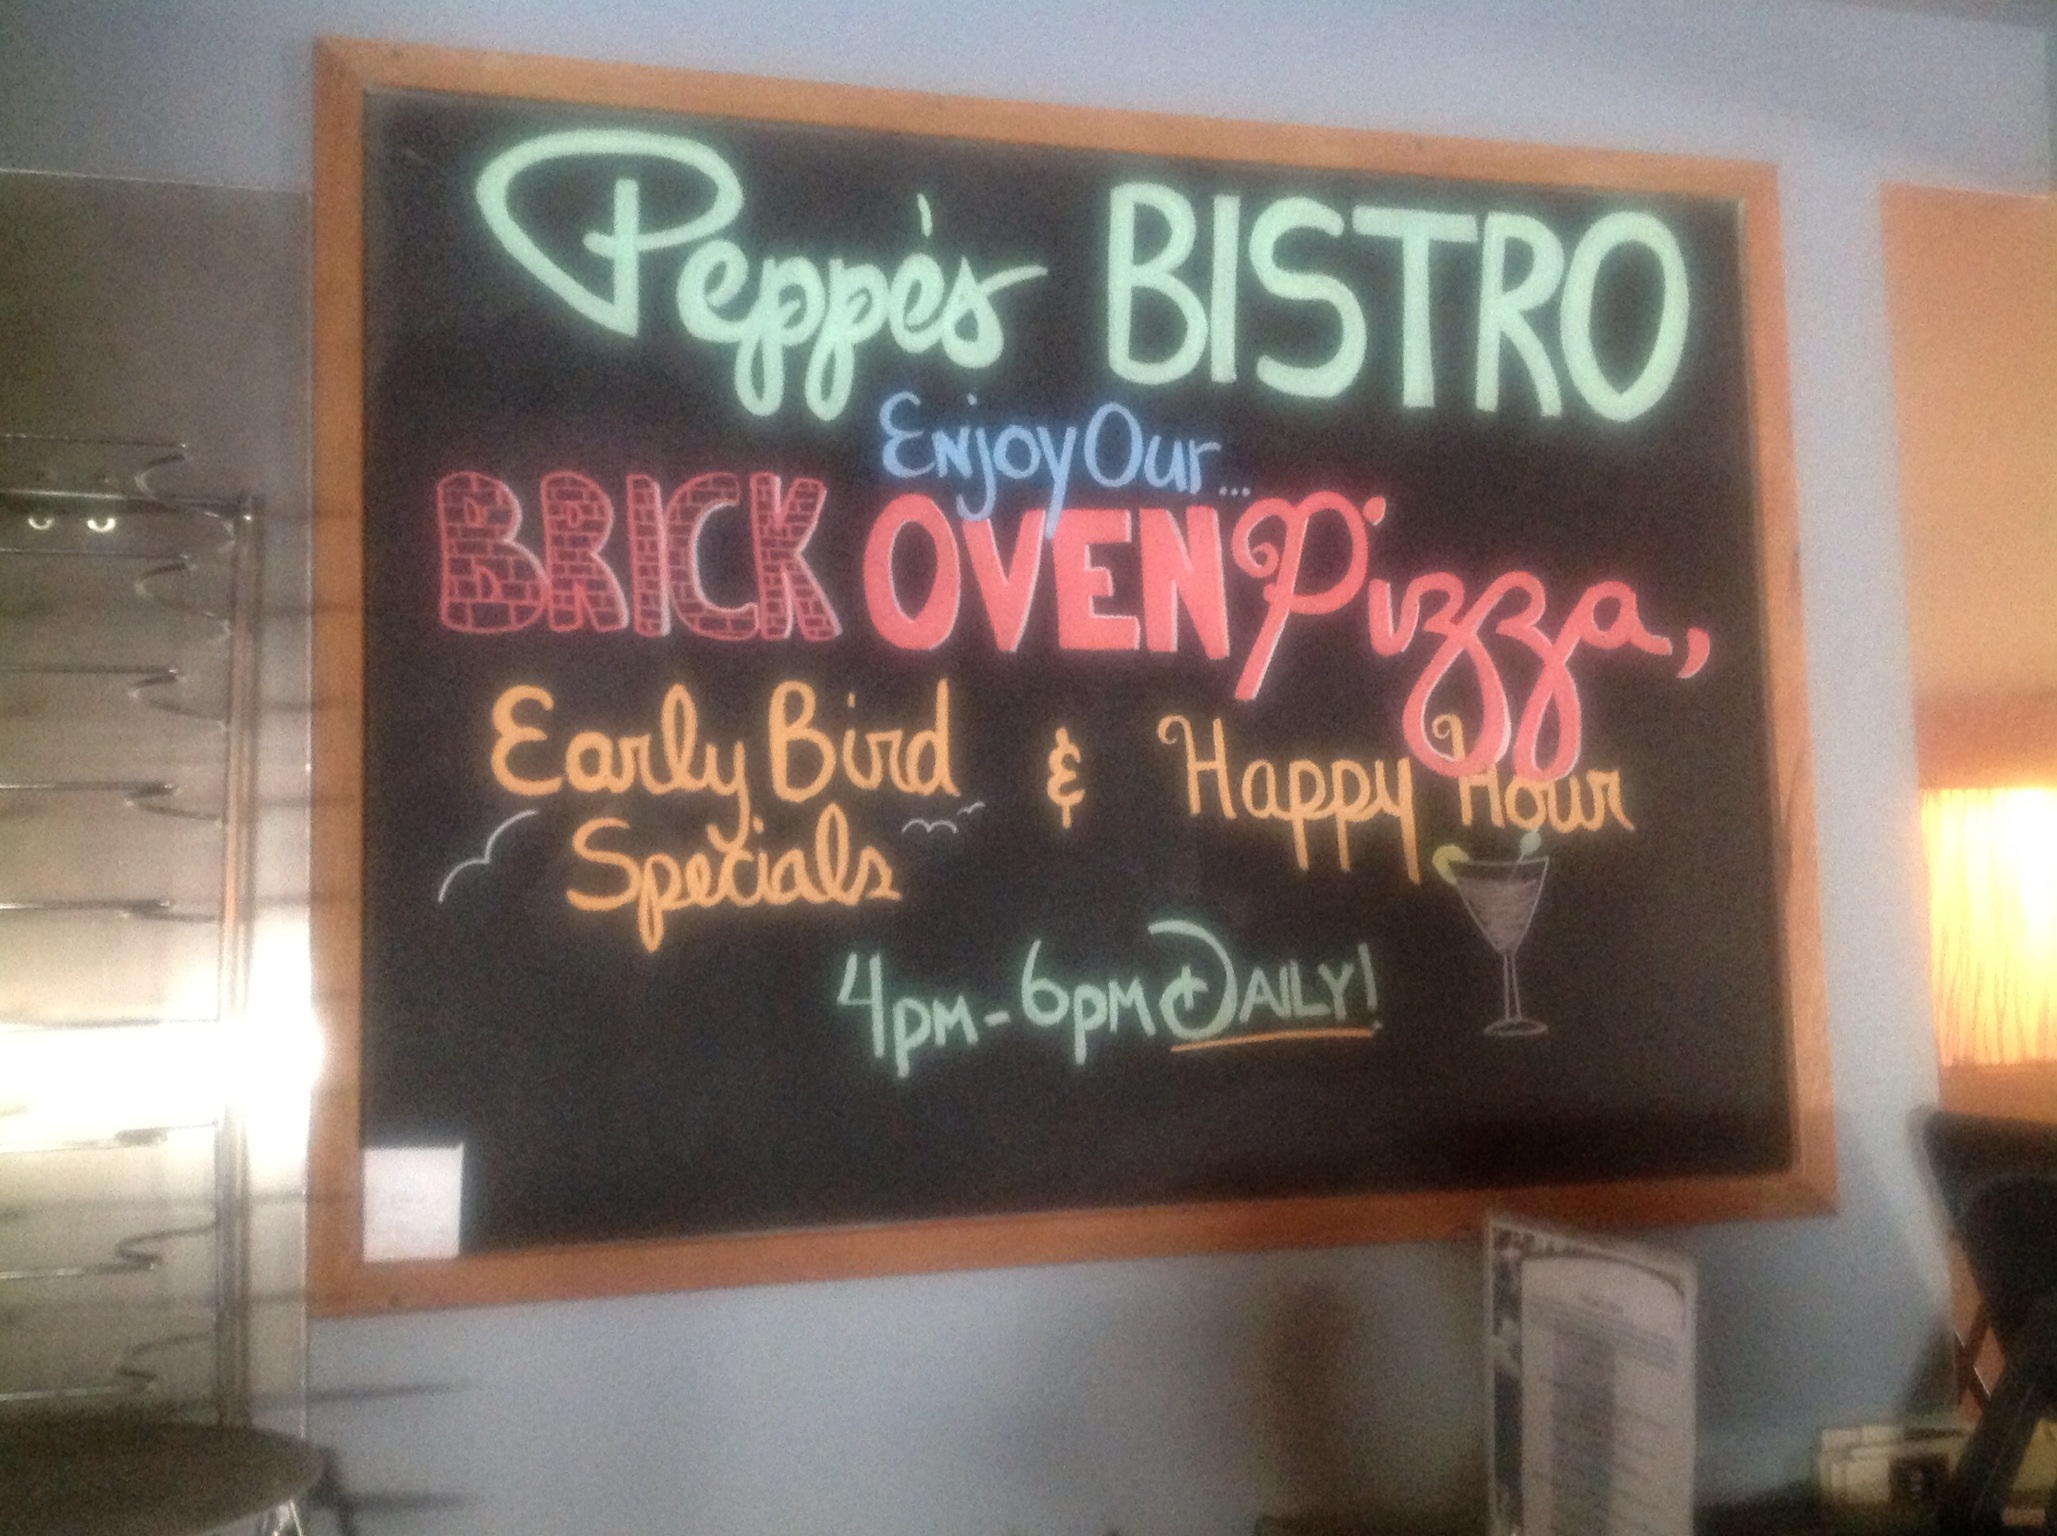 Peppe's BISTRO
Enjoy Our...
BRICK OVEN Pizza,
Early Bird & Happy Hour
Specials
4PM-6PM DAILY!